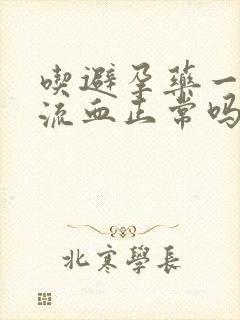 喫避孕藥一
流血正常吗
北寒學長